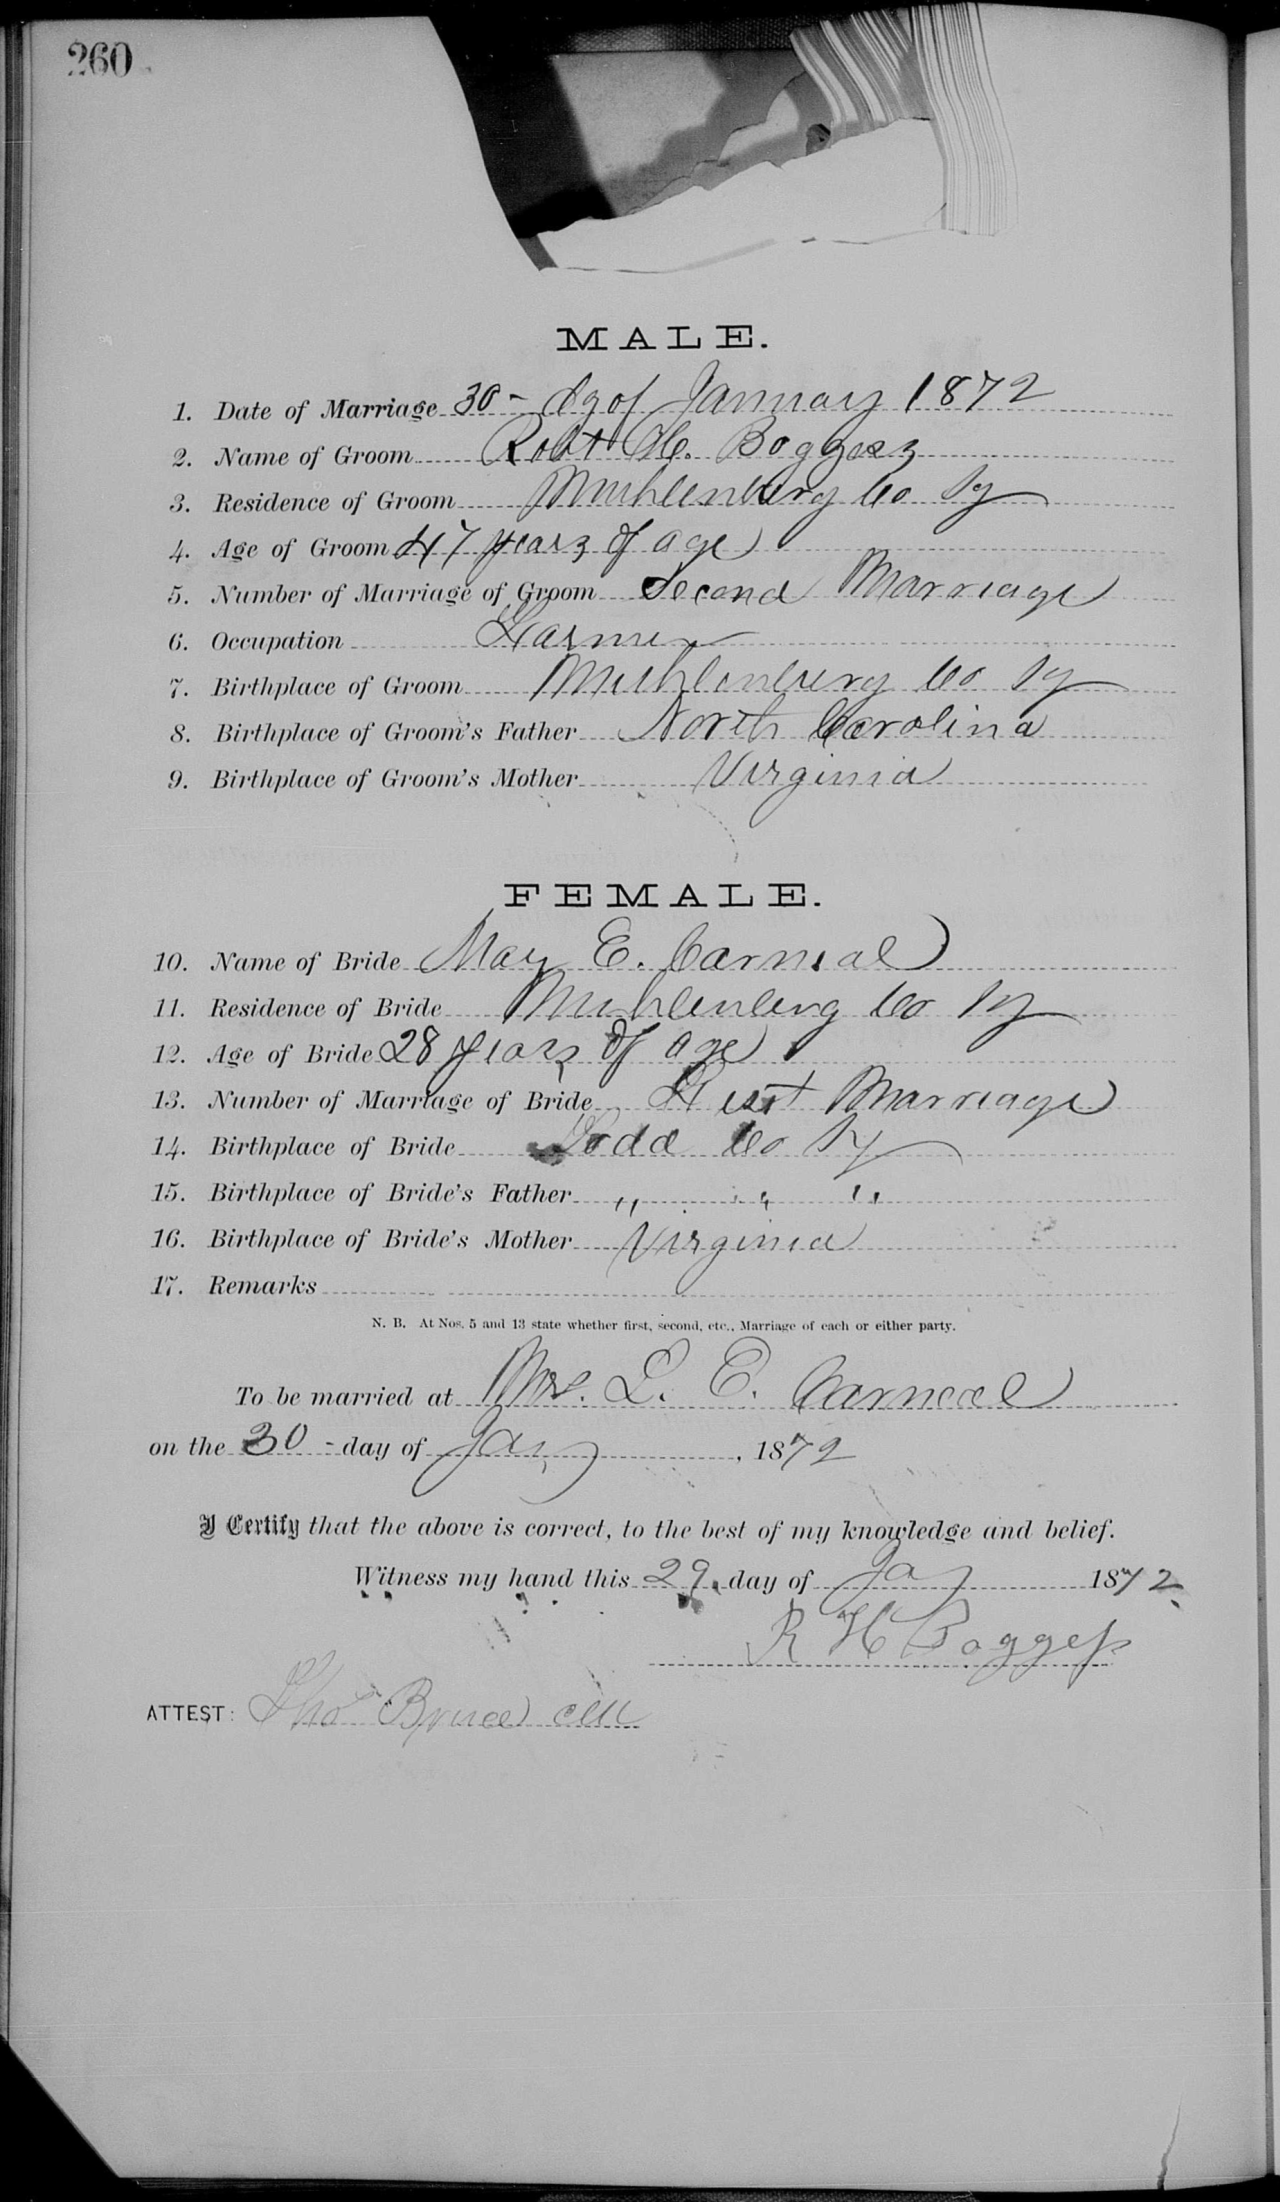 260
MALE.
1. Date of Marriage 30- dy of January 1872
2. Name of Groom Robt H. Boggess
3. Residence of Groom Muhlenberg Co Ky
4. Age of Groom 47 years of age
5. Number of Marriage of Groom Second Marriage
6. Occupation Farmer
7. Birthplace of Groom Muhlenberg Co Ky
8. Birthplace of Groom's Father North Carolina
9. Birthplace of Groom's Mother Virginia
FEMALE.
10. Name of Bride May E. Carneal
11. Residence of Bride Muhlenberg Co Ky
12. Age of Bride 28 years of age
13. Number of Marriage of Bride First Marriage
14. Birthplace of Bride Todd Co Ky
15. Birthplace of Bride's Father " " "
16. Birthplace of Bride's Mother Virginia
17. Remarks
N. B. At Nos. 5 and 13 state whether first, second, etc., Marriage of each or either party.
To be married at Mrs. L. E. Carneal
on the 30 - day of Jany, 1872
I Certify that the above is correct, to the best of my knowledge and belief.
Witness my hand this 29 day of Jay 1872
R H Boggess
ATTEST: Tho Bruce clk